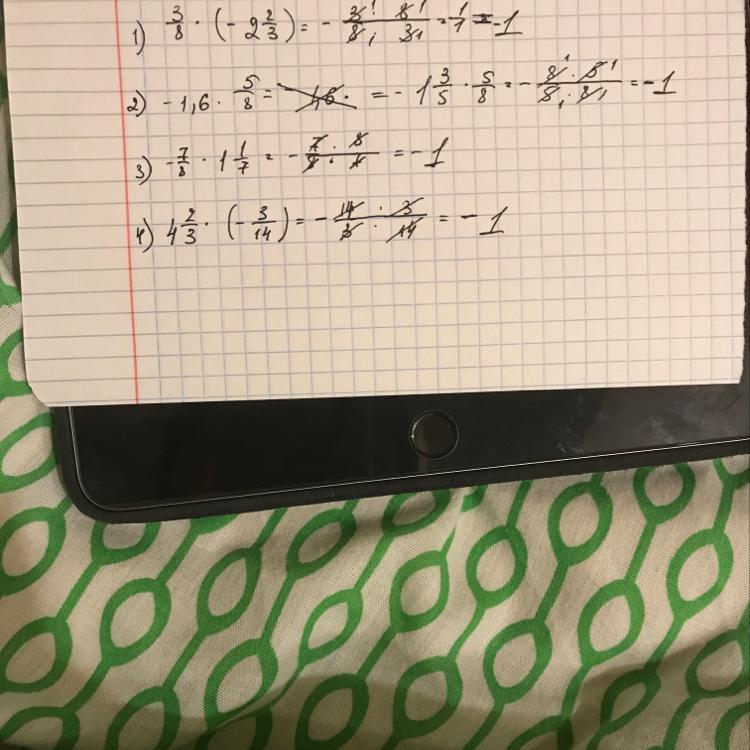 1) 3/8 · (- 2 2/3) = - 3·8/8·3 = 1/1 = -1
2) -1,6 · 5/8 = = - 1 3/5 · 5/8 = - 8·5/5·8 = -1
3) -7/8 · 1 1/7 = - 7·8/8·7 = -1
4) 4 2/3 · (- 3/14) = - 14·3/3·14 = -1